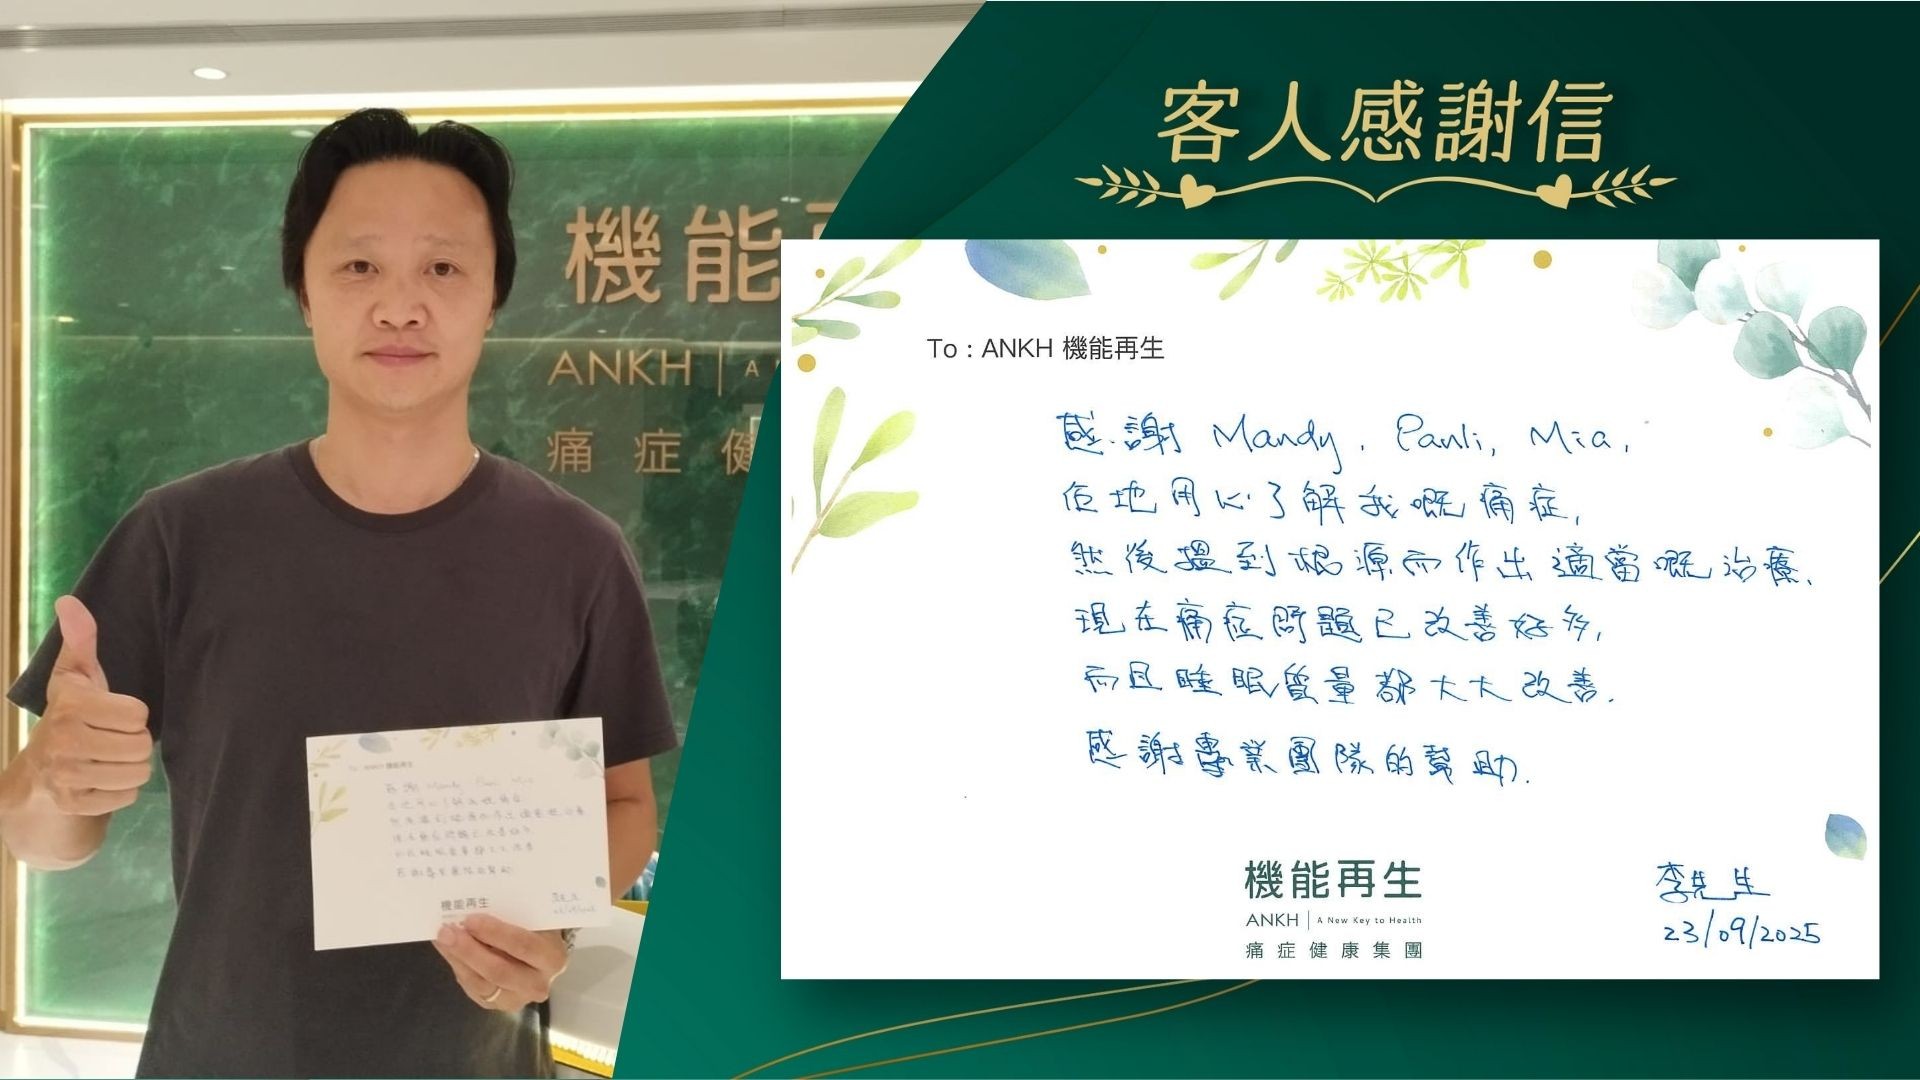 機能
ANKH | A
痛症健
客人感謝信
To : ANKH 機能再生
感謝 Mandy, Pauli, Mia,
佢地用心了解我嘅痛症,
然後搵到根源而作出適當嘅治療,
現在痛症問題已改善好多,
而且睡眠質量都大大改善.
感謝專業團隊的幫助.
機能再生
ANKH | A New Key to Health
痛症健康集團
李先生
23/09/2025